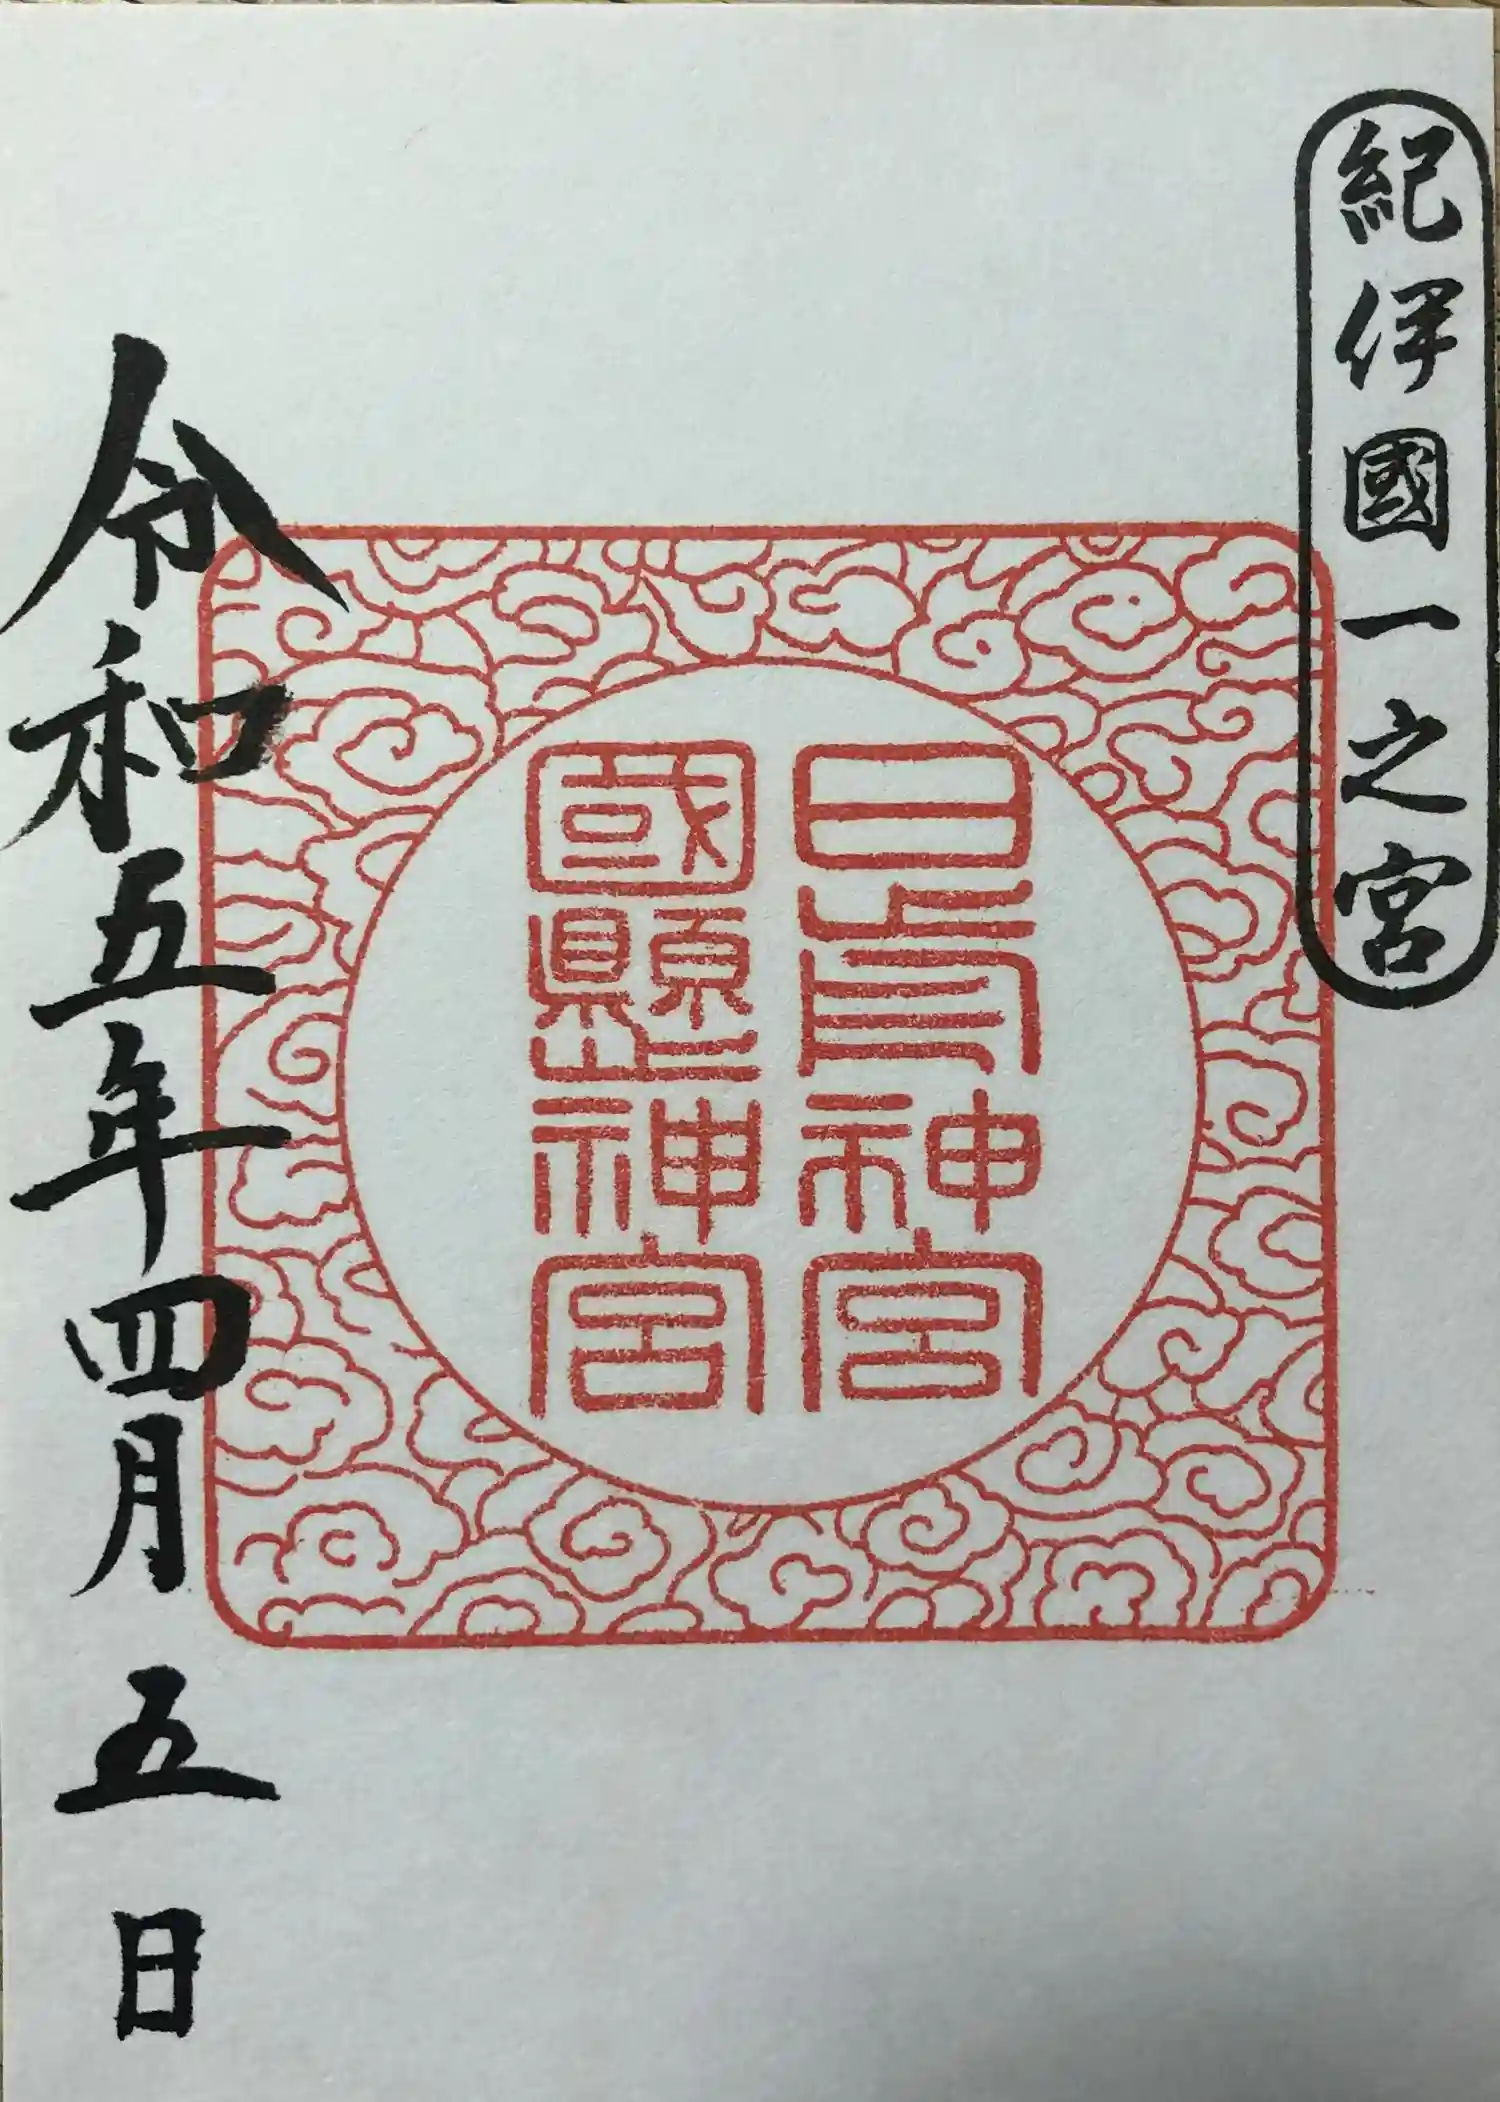 紀伊國一之宮
日前神宮
國懸神宮
令和五年四月五日